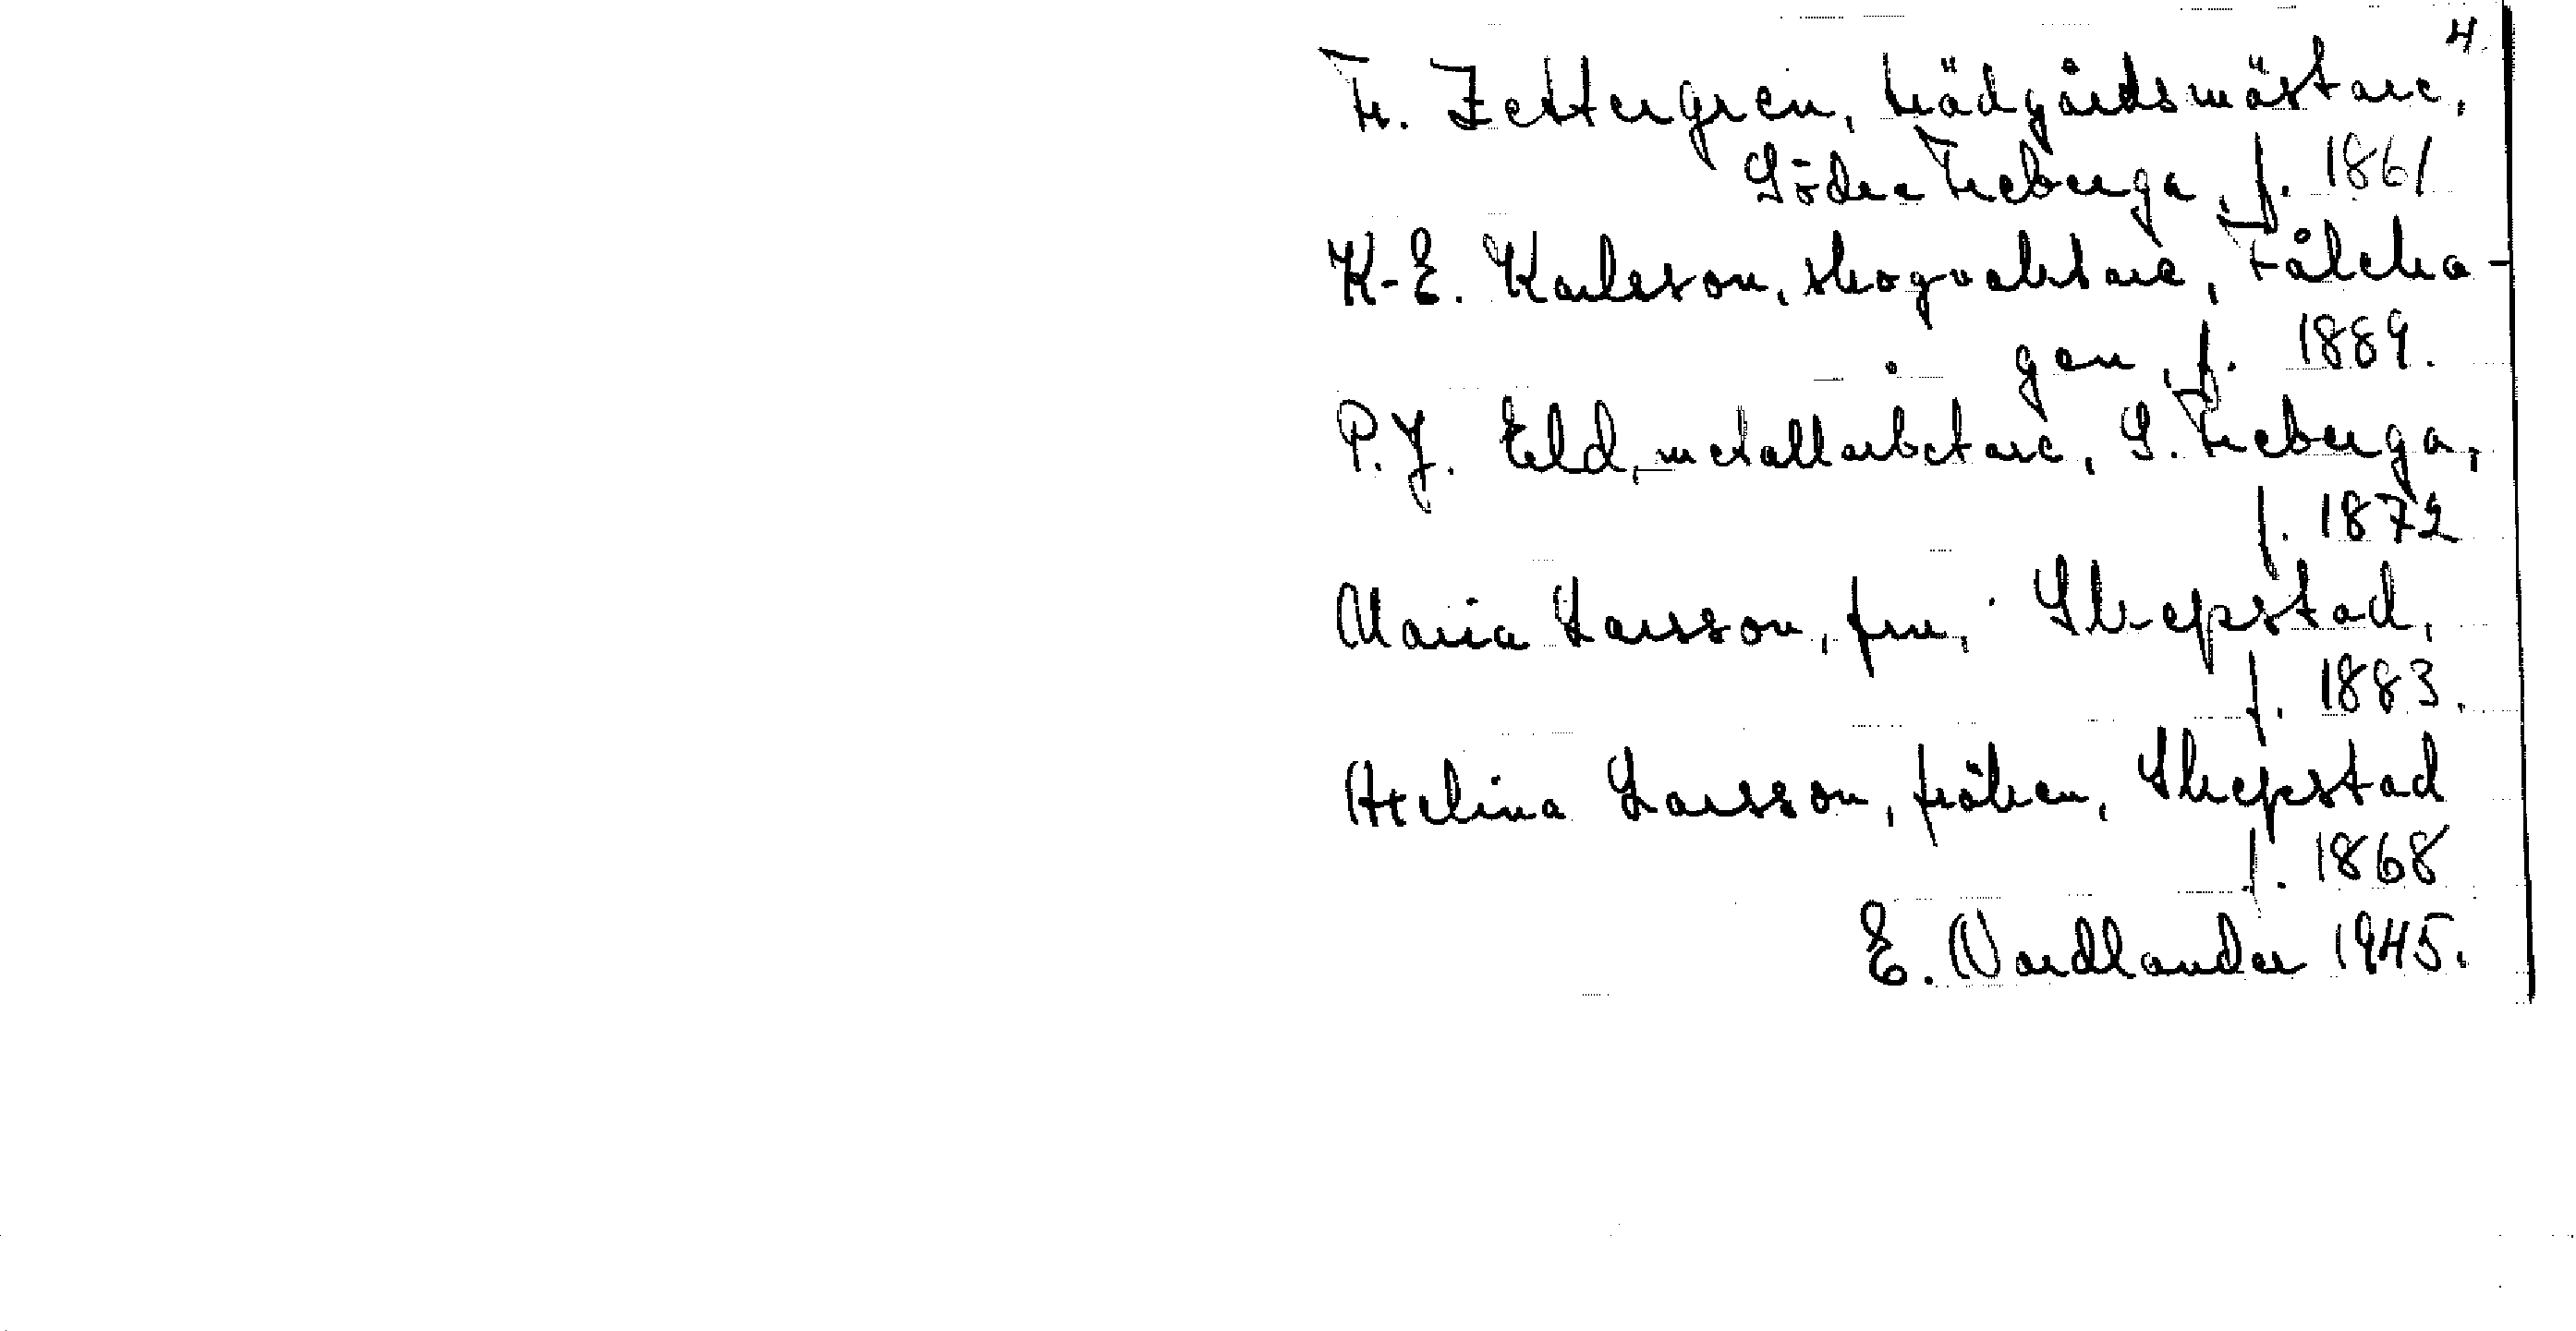 4.
Fr. Zettergren, trädgårdsmästare,
Södra Freberga, f. 1861
K-E. Karlsson, skogvaktare, Fåleha-
gen, f. 1889.
P.J. Eld, metallarbetare, S. Freberga,
f. 1872
Maria Larsson, fru, Skepstad,
f. 1883.
Helina Larsson, fröken, Skepstad
f. 1868
E. Nordlander 1945.